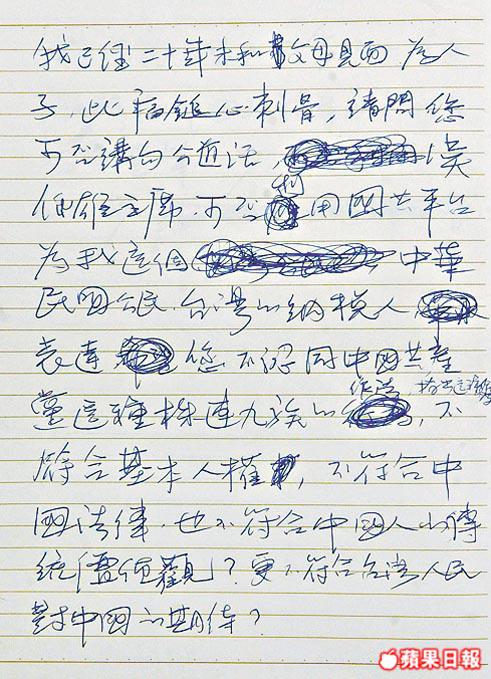 我已經二十年未和父母見面 為人
子,此痛錐心刺骨,請問您
可否講句公道話, 吳
伯雄主席,可否利用國共平台
為我這個 中華
民國公民,台灣的納稅人,
表達 您不認同中國共產
作法,
黨這種株連九族的 ,不
符合基本人權,不符合中
國法律,也不符合中國人的傳
統價值觀?更不符合台灣人民
對中國的期待?
蘋果日報